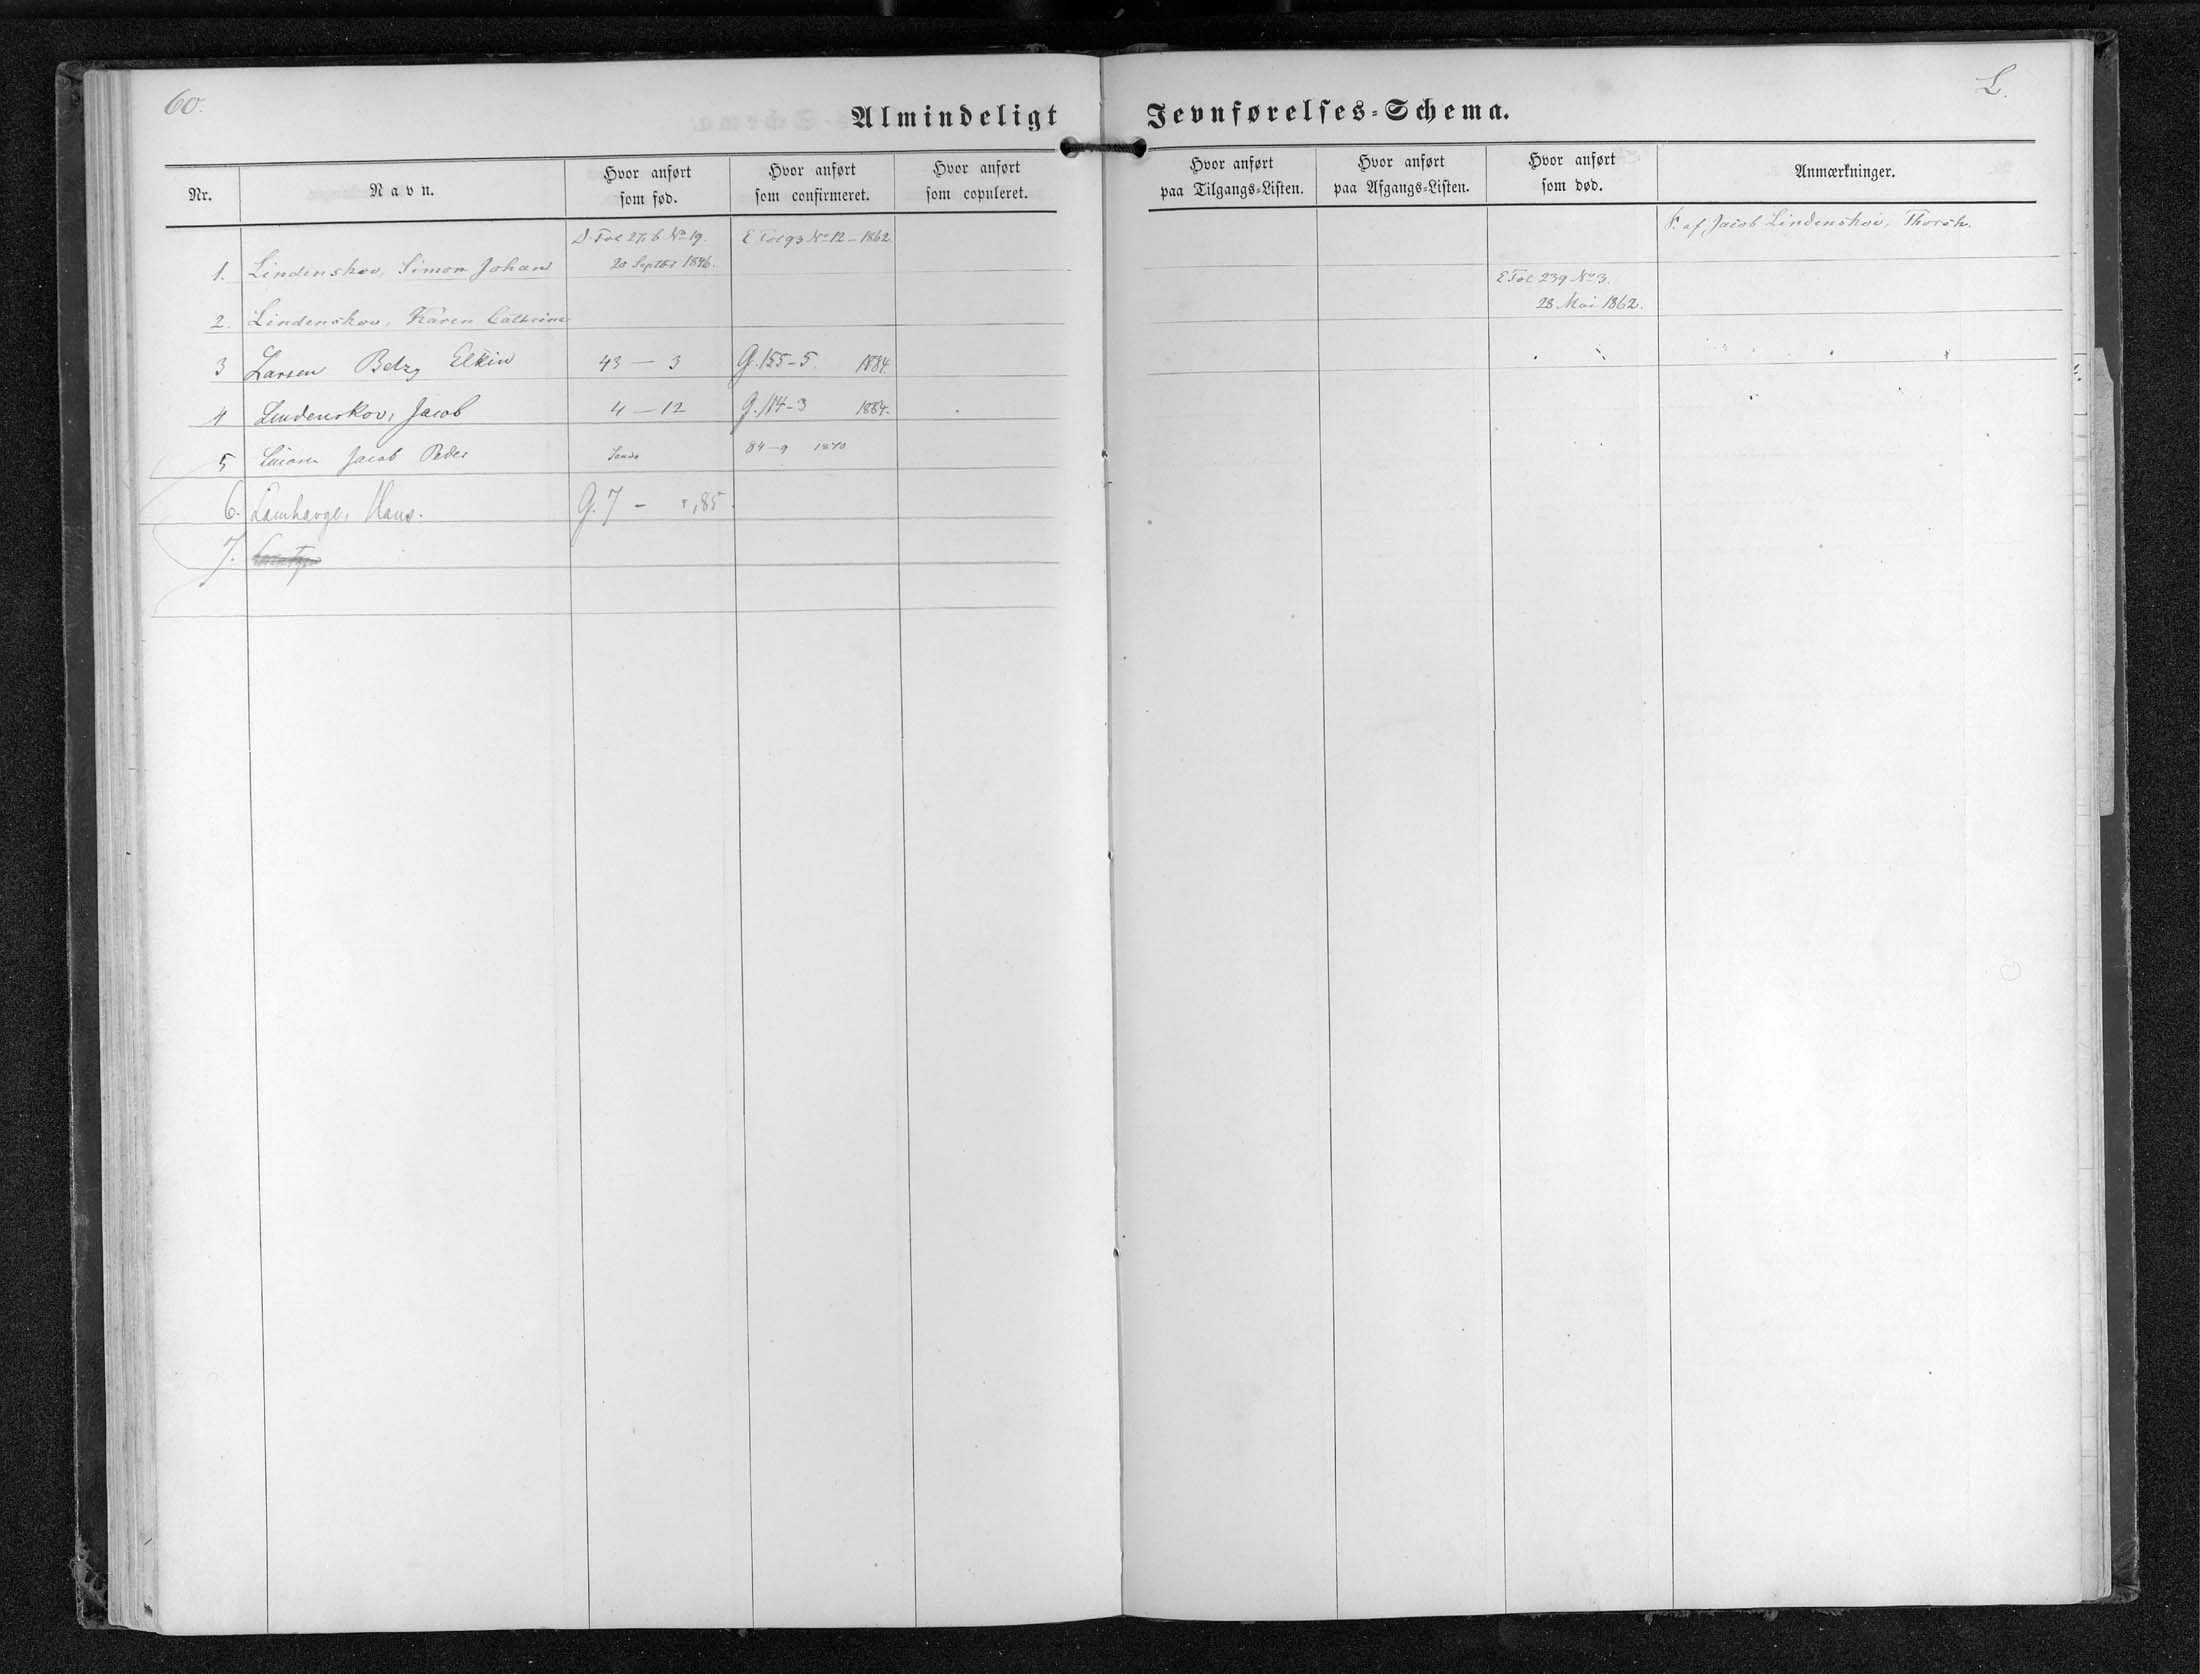 60.
L.
Almindeligt Jevnførelses-Schema.
Nr.
Navn.
Hvor anført som fød.
Hvor anført som confirmeret.
Hvor anført som copuleret.
Hvor anført paa Tilgangs-Listen.
Hvor anført paa Afgangs-Listen.
Hvor anført som død.
Anmærkninger.
1. Lindenskov, Simon Johan D. Fol 27, b No 19. 20 Septbr 1846. E Fol 93 No 12 - 1862. S. af Jacob Lindenskov, Thorsh.
2. Lindenskov, Karen Cathrine E Fol 239 No 3. 28 Mai 1862.
3 Larsen Betzy Elkin 43 — 3 G. 155 - 5. 1884.
4 Lindenskov, Jacob 4 — 12 G. 114 - 3 1884.
5 Jacob Peder Sando 84 - 9 1870
6. Lamhauge, Hans. G. 7 - 85.
7.